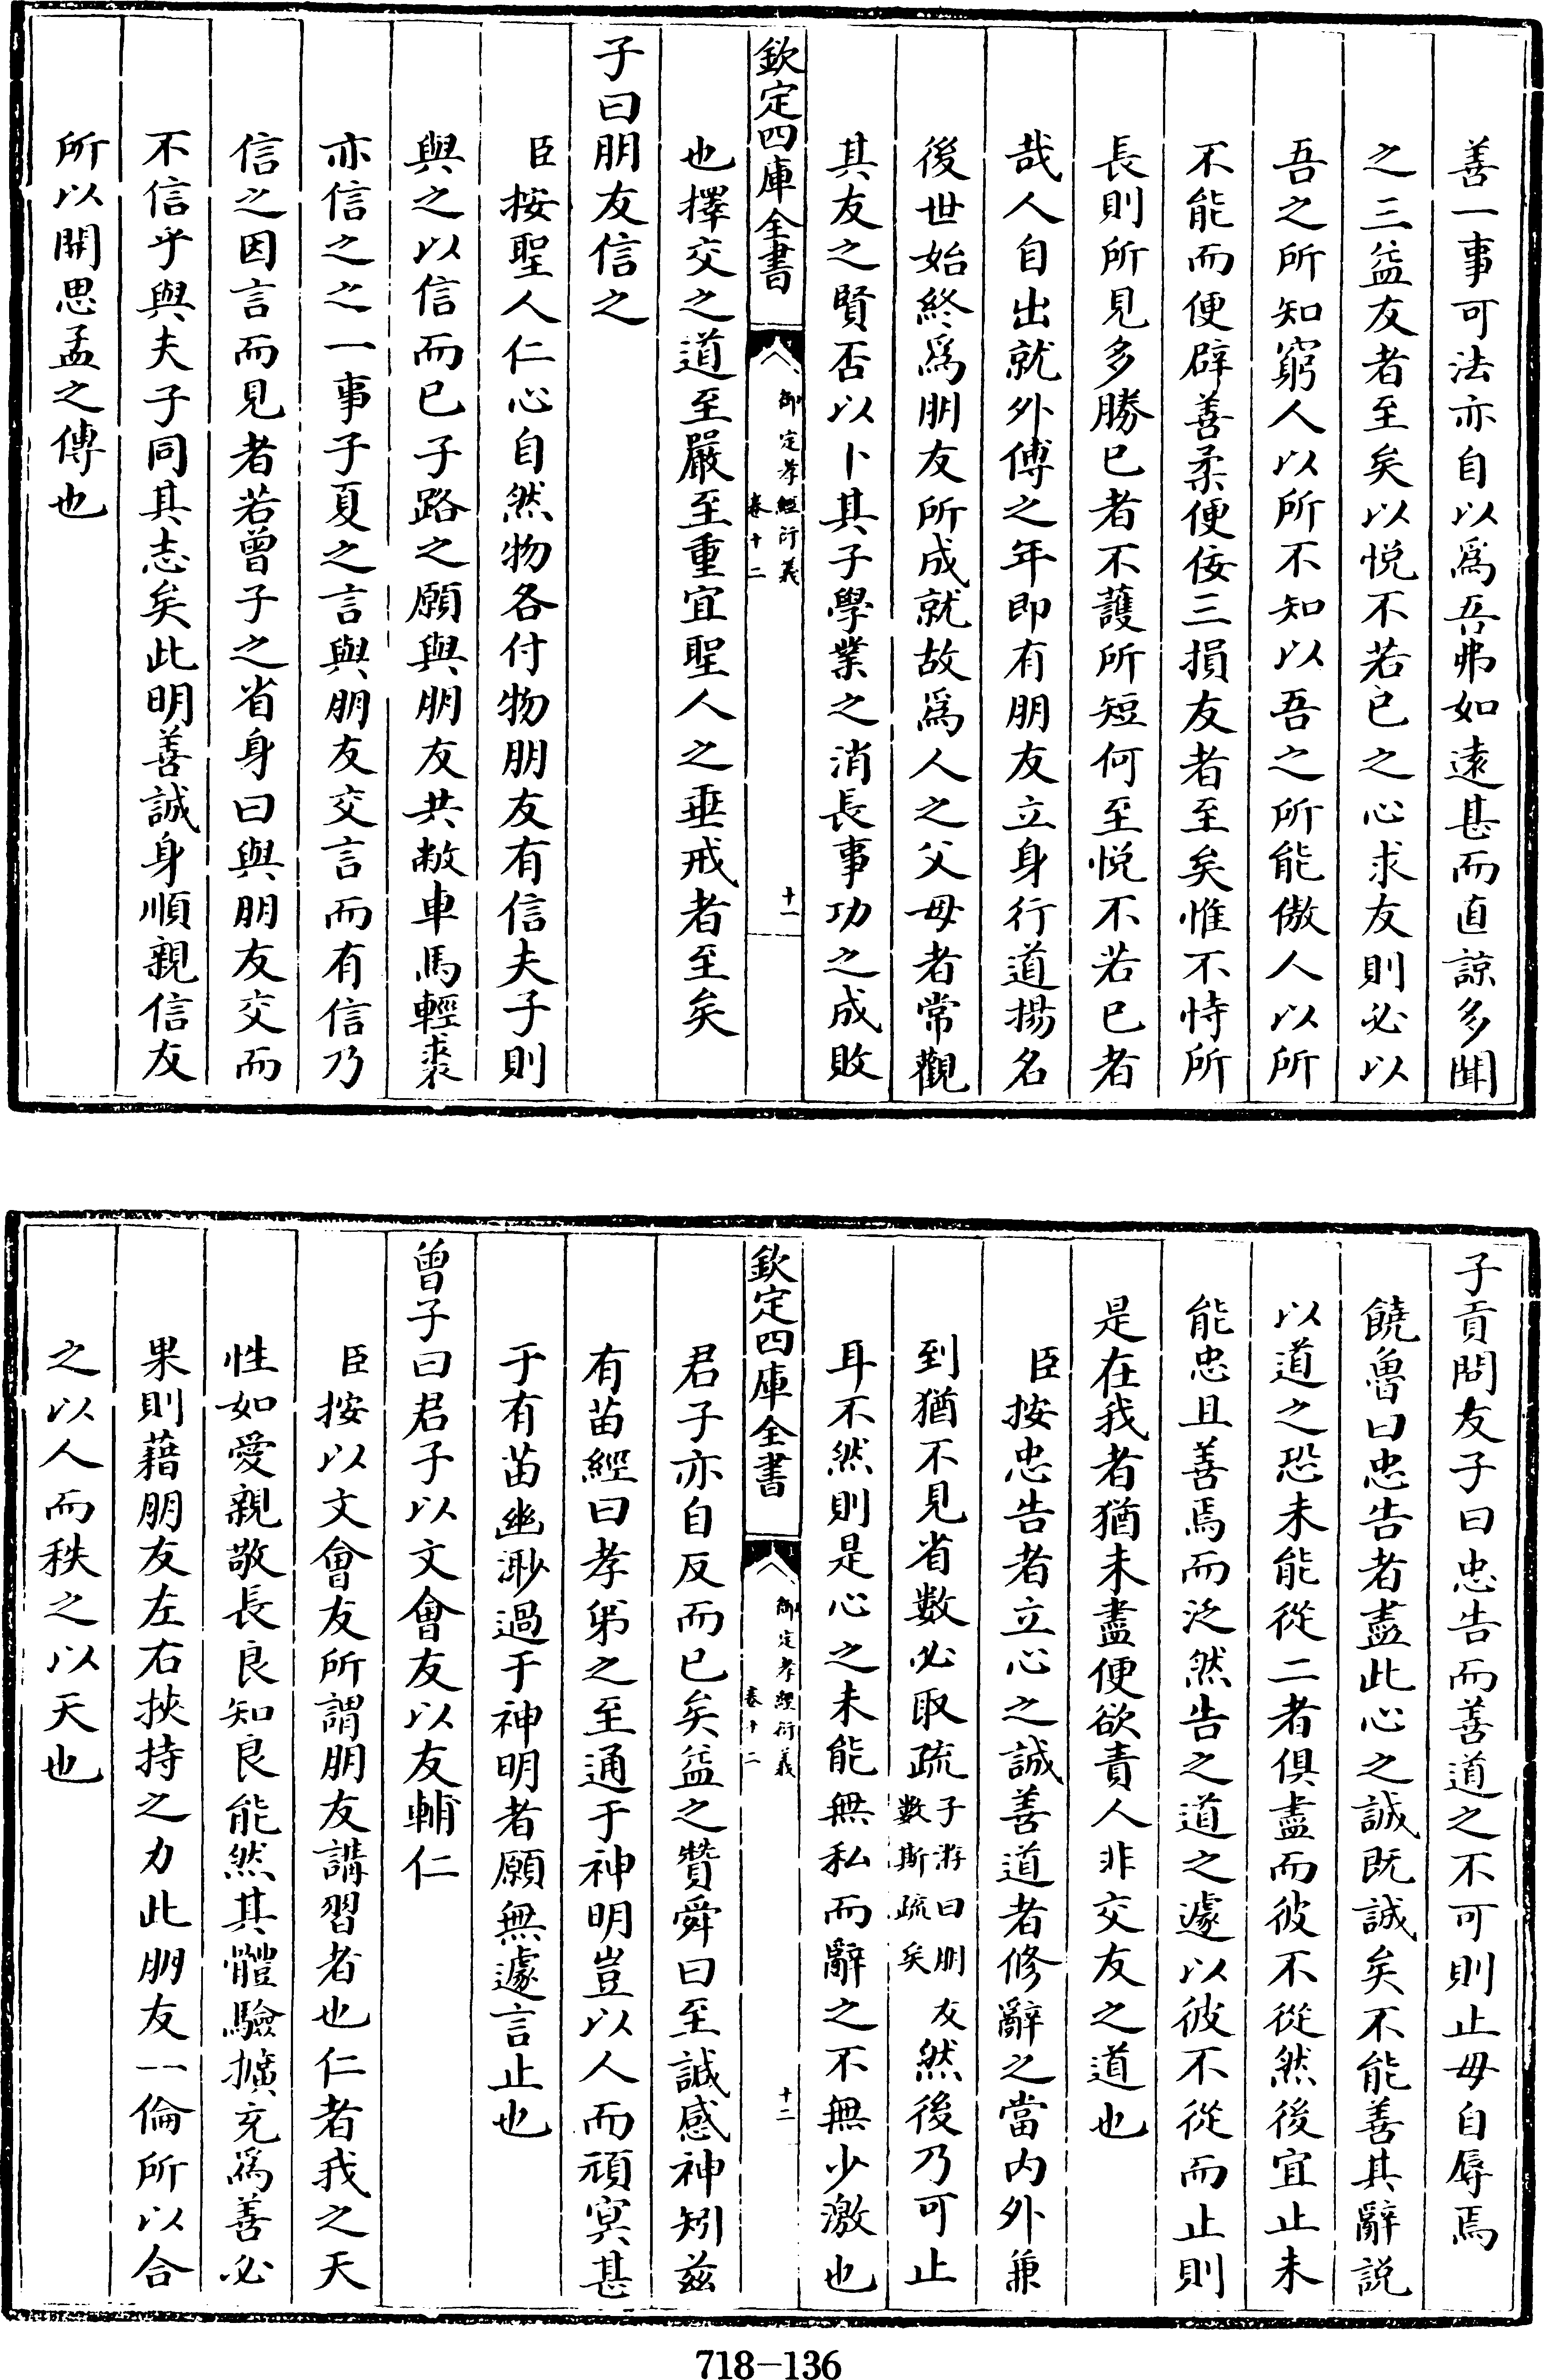 善一事可法亦自以爲吾弗如遠甚而直諒多聞
之三益友者至矣以悦不若已之心求友則必以
吾之所知窮人以所不知以吾之所能傲人以所
不能而便辟善柔便佞三損友者至矣惟不恃所
長則所見多勝已者不護所短何至悦不若已者
哉人自出就外傅之年即有朋友立身行道揚名
後世始終爲朋友所成就故爲人之父母者常觀
其友之賢否以卜其子學業之消長事功之成敗
欽定四庫全書
御定孝經衍義
卷十二
十一
也擇交之道至嚴至重宜聖人之垂戒者至矣
子曰朋友信之
臣按聖人仁心自然物各付物朋友有信夫子則
與之以信而已子路之願與朋友共敝車馬輕裘
亦信之之一事子夏之言與朋友交言而有信乃
信之因言而見者若曾子之省身曰與朋友交而
不信乎與夫子同其志矣此明善誠身順親信友
所以開思孟之傳也
子貢問友子曰忠告而善道之不可則止毋自辱焉
饒魯曰忠告者盡此心之誠既誠矣不能善其辭説
以道之恐未能從二者俱盡而彼不從然後宜止未
能忠且善焉而泛然告之道之遽以彼不從而止則
是在我者猶未盡便欲責人非交友之道也
臣按忠告者立心之誠善道者修辭之當内外兼
到猶不見省數必取疏子游曰朋友數斯疏矣然後乃可止
耳不然則是心之未能無私而辭之不無少激也
欽定四庫全書
御定孝經衍義
卷十二
十二
君子亦自反而已矣益之贊舜曰至誠感神矧兹
有苗經曰孝弟之至通于神明豈以人而頑冥甚
于有苗幽渺過于神明者願無遽言止也
曾子曰君子以文會友以友輔仁
臣按以文會友所謂朋友講習者也仁者我之天
性如愛親敬長良知良能然其體驗擴充爲善必
果則藉朋友左右挾持之力此朋友一倫所以合
之以人而秩之以天也
718-136